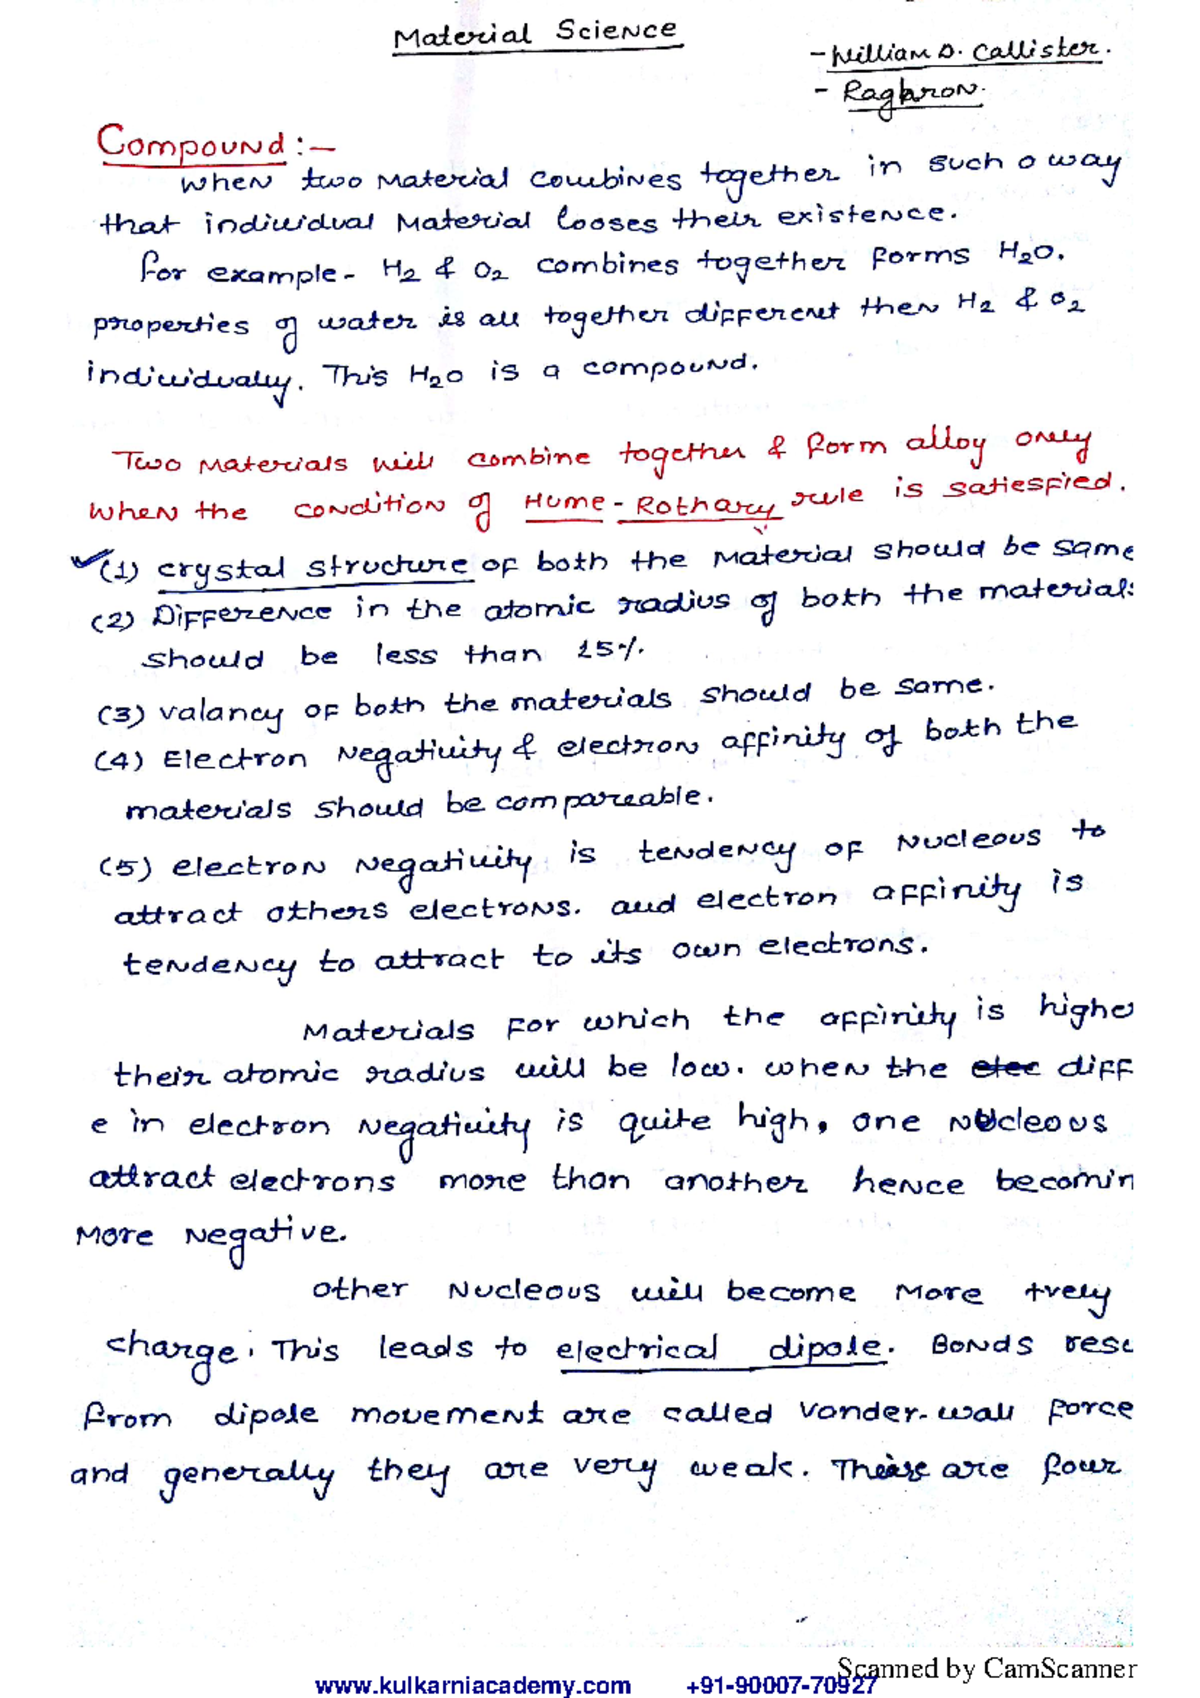 Material Science
- William D. Callister.
- Raghron.
Compound :-
when two Material combines together in such a way
that individual Material looses their existence.
for example - H2 & O2 combines together forms H2O.
properties of water is all together different then H2 & O2
individually. This H2O is a compound.
Two Materials will combine together & form alloy only
when the condition of Hume - Rothary rule is satiesfied.
(1) crystal structure of both the Material should be same
(2) Difference in the atomic radius of both the materials
should be less than 15%.
(3) valancy of both the materials should be same.
(4) Electron Negativity & electron affinity of both the
materials should be compareable.
(5) electron Negativity is tendency of Nucleous to
attract others electrons. and electron affinity is
tendency to attract to its own electrons.
Materials for which the affinity is highe
their atomic radius will be low. when the elec diff
e in electron Negativity is quite high, one Nucleous
attract electrons more than another hence becomin
More Negative.
other Nucleous will become More +vely
charge. This leads to electrical dipole. Bonds resu
from dipole movement are called vander-wall force
and generally they are very weak. These are four
Scanned by CamScanner
www.kulkarniacademy.com +91-90007-70927